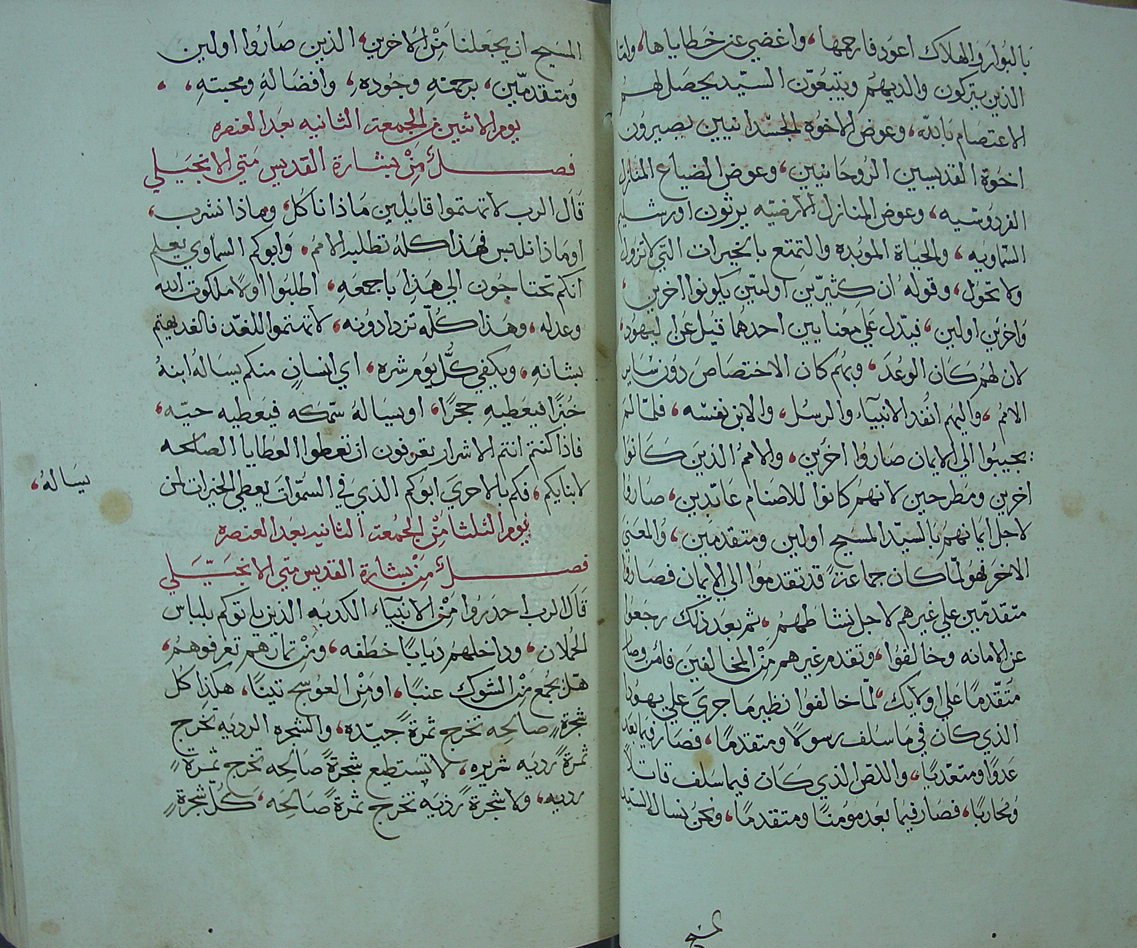 بالبوار والهلاك اعود فارحمها، واغضي عن خطاياها، ولنا
الذين يتركون والديهم ويتبعون السيد يحصل لهم
الاعتصام بالله، وعوض الاخوة الجسدانيين يصيرون
اخوة القديسين الروحانيين، وعوض الضياع المنازل
الفردوسيه، وعوض المنازل الارضيه يرثون اورشليم
السماويه، والحياة الموبده والتمتع بالخيرات التي لا تزول
ولا تحول، وقوله ان كثيرين اولين يكونوا اخرين،
واخرين اولين، فيدل علي معنايين احدهما قيل عن اليهود،
لان لهم كان الوعد، وبهم كان الاختصاص دون ساير
الامم، واليهم انفذ الانبياء والرسل، والابن نفسه، فلما لم
يجيبوا الي الايمان صاروا اخرين، والامم الذين كانوا
اخرين ومطرحين لانهم كانوا للاصنام عابدين، صاروا
لاجل ايمانهم بالسيد المسيح اولين ومتقدمين، والمعني
الاخر فهو لما كان جماعة قد تقدموا الي الايمان فصاروا
متقدمين علي غيرهم لاجل نشاطهم، ثم بعد ذلك رجعوا
عن الامانه وخالفوا، وتقدم غيرهم من المخالفين فامن وصار
متقدمًا علي اولايك، لما خالفوا نظير ما جري علي يهودا
الذي كان في ما سلف رسولًا ومتقدمًا، فصار فيما بعد
عدوًا ومتعديًا، واللص الذي كان فيما سلف قاتلًا
ومحاربًا، فصار فيما بعد مومنًا ومتقدمًا، ونحن نسال السيد
المسيح
المسيح ان يجعلنا من الاخرين، الذين صاروا اولين
ومتقدمين، برحمته وجوده، وافضاله ومحبته،
يوم الاثنين من الجمعة الثانيه بعد العنصره
فصل من بشارة القديس متي الانجيلي
قال الرب لا تهتموا قايلين ماذا ناكل، وماذا نشرب،
او ماذا نلبس فهذا كله تطلبه الامم، وابوكم السماوي يعلم
انكم تحتاجون الي هذا باجمعه، اطلبوا اولا ملكوت الله
وعدله، وهذا كله تزدادونه، لا تهتموا للغد فالغد يهتم
بشانه، ويكفي كل يوم شره، اي انسان منكم يساله ابنه
خبزًا فيعطيه حجرًا، او يساله سمكه فيعطيه حيه،
فاذا كنتم انتم الاشرار تعرفون ان تعطوا العطايا الصالحه
لابنايكم، فكم بالاحري ابوكم الذي في السموات يعطي الخيرات لمن
يساله،
يوم الثلثا من الجمعة الثانيه بعد العنصره
فصل من بشارة القديس متي الانجيلي
قال الرب احدروا من الانبياء الكدبه الذين ياتوكم بلباس
الحملان، وداخلهم ديابًا خطفه، ومن ثمارهم تعرفوهم،
هل يجمع من الشوك عنبًا، او من العوسج تينًا، هكذا كل
شجرةٍ صالحه تخرج ثمرةً جيده، والشجره الرديه تخرج
ثمرةً رديه شريره، لا تستطع شجرةً صالحه تخرج ثمرةً
رديه، ولا شجرة رديه تخرج ثمرةً صالحه، كل شجرةٍ